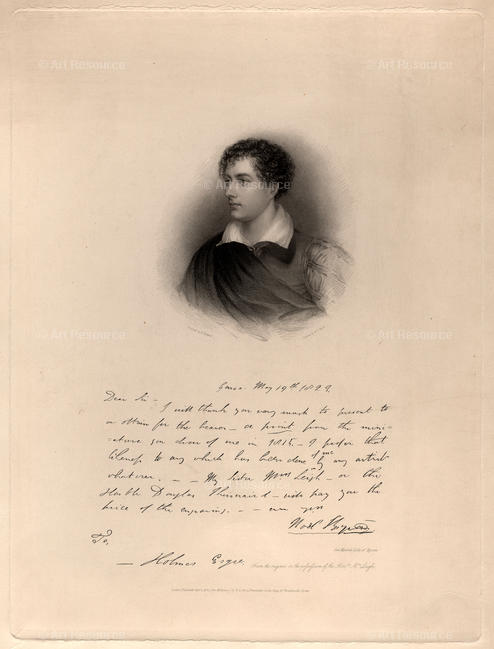 © Art Resource © Art Resource
© Art Resource
© Art Resource © Art Resource
Genoa May 19th 1823.
Dear Sir – I will thank you very much to present to
or obtain for the bearer – a print from the mini-
-ature you drew of me in 1815 – I prefer that
likeness to any which has been done of me by any artist
whatever. – – My Sister Mrs Leigh – or the
Honble Douglas Kinnaird – will pay you the
price of the engraving. – – ever yrs
Noel Byron
To,
– Holmes Esqre.
From the original in the possession of the Honble. Mrs. Leigh.
© Art Resource © Art Resource